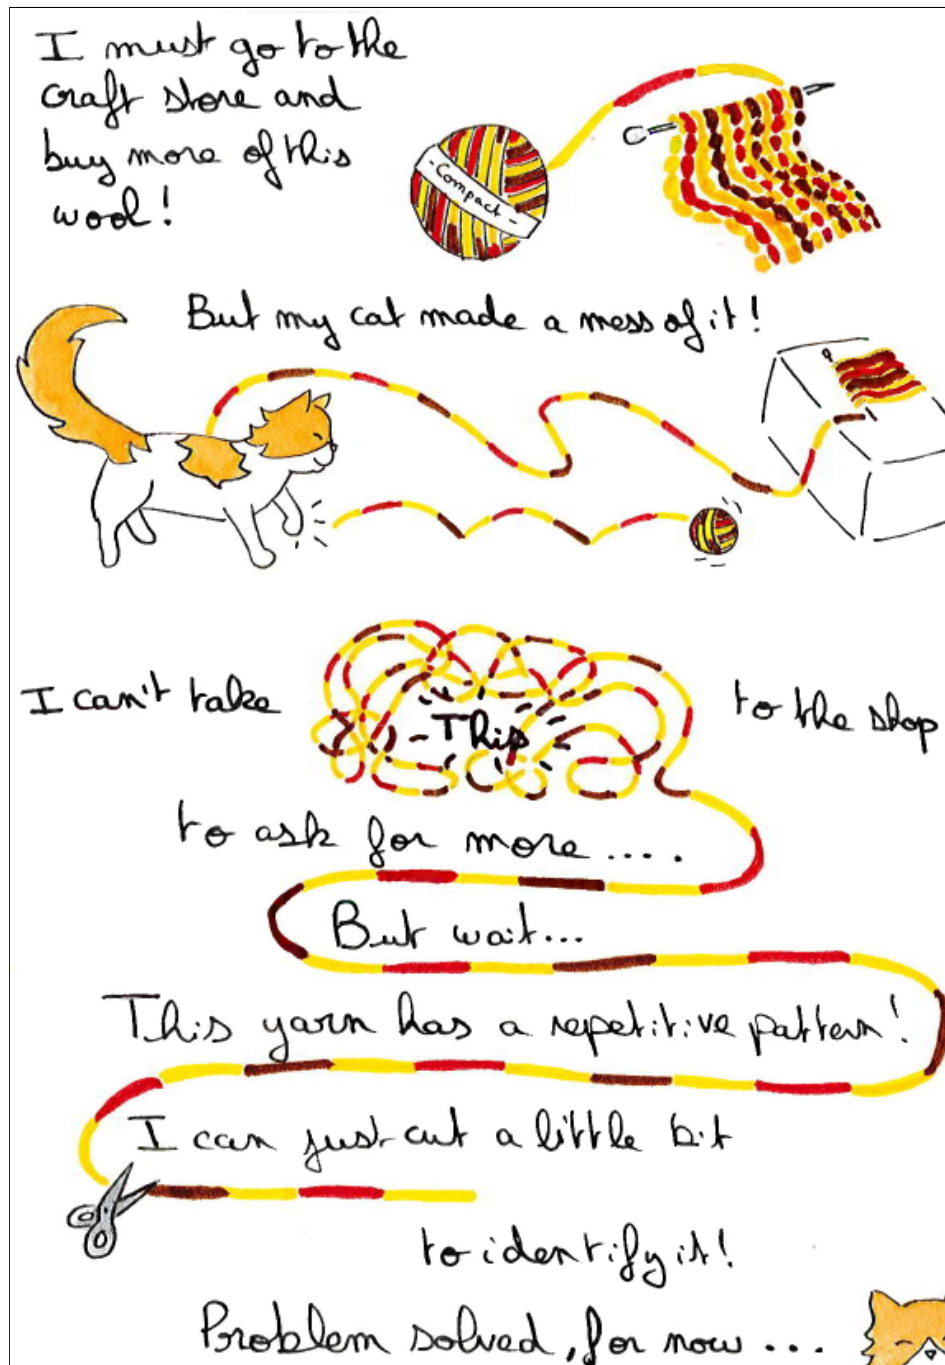 I must go to the
craft store and
buy more of this
wool!
- Compact -
But my cat made a mess of it!
I can't take
- This -
to the shop
to ask for more ....
But wait...
This yarn has a repetitive pattern!
I can just cut a little bit
to identify it!
Problem solved, for now ...